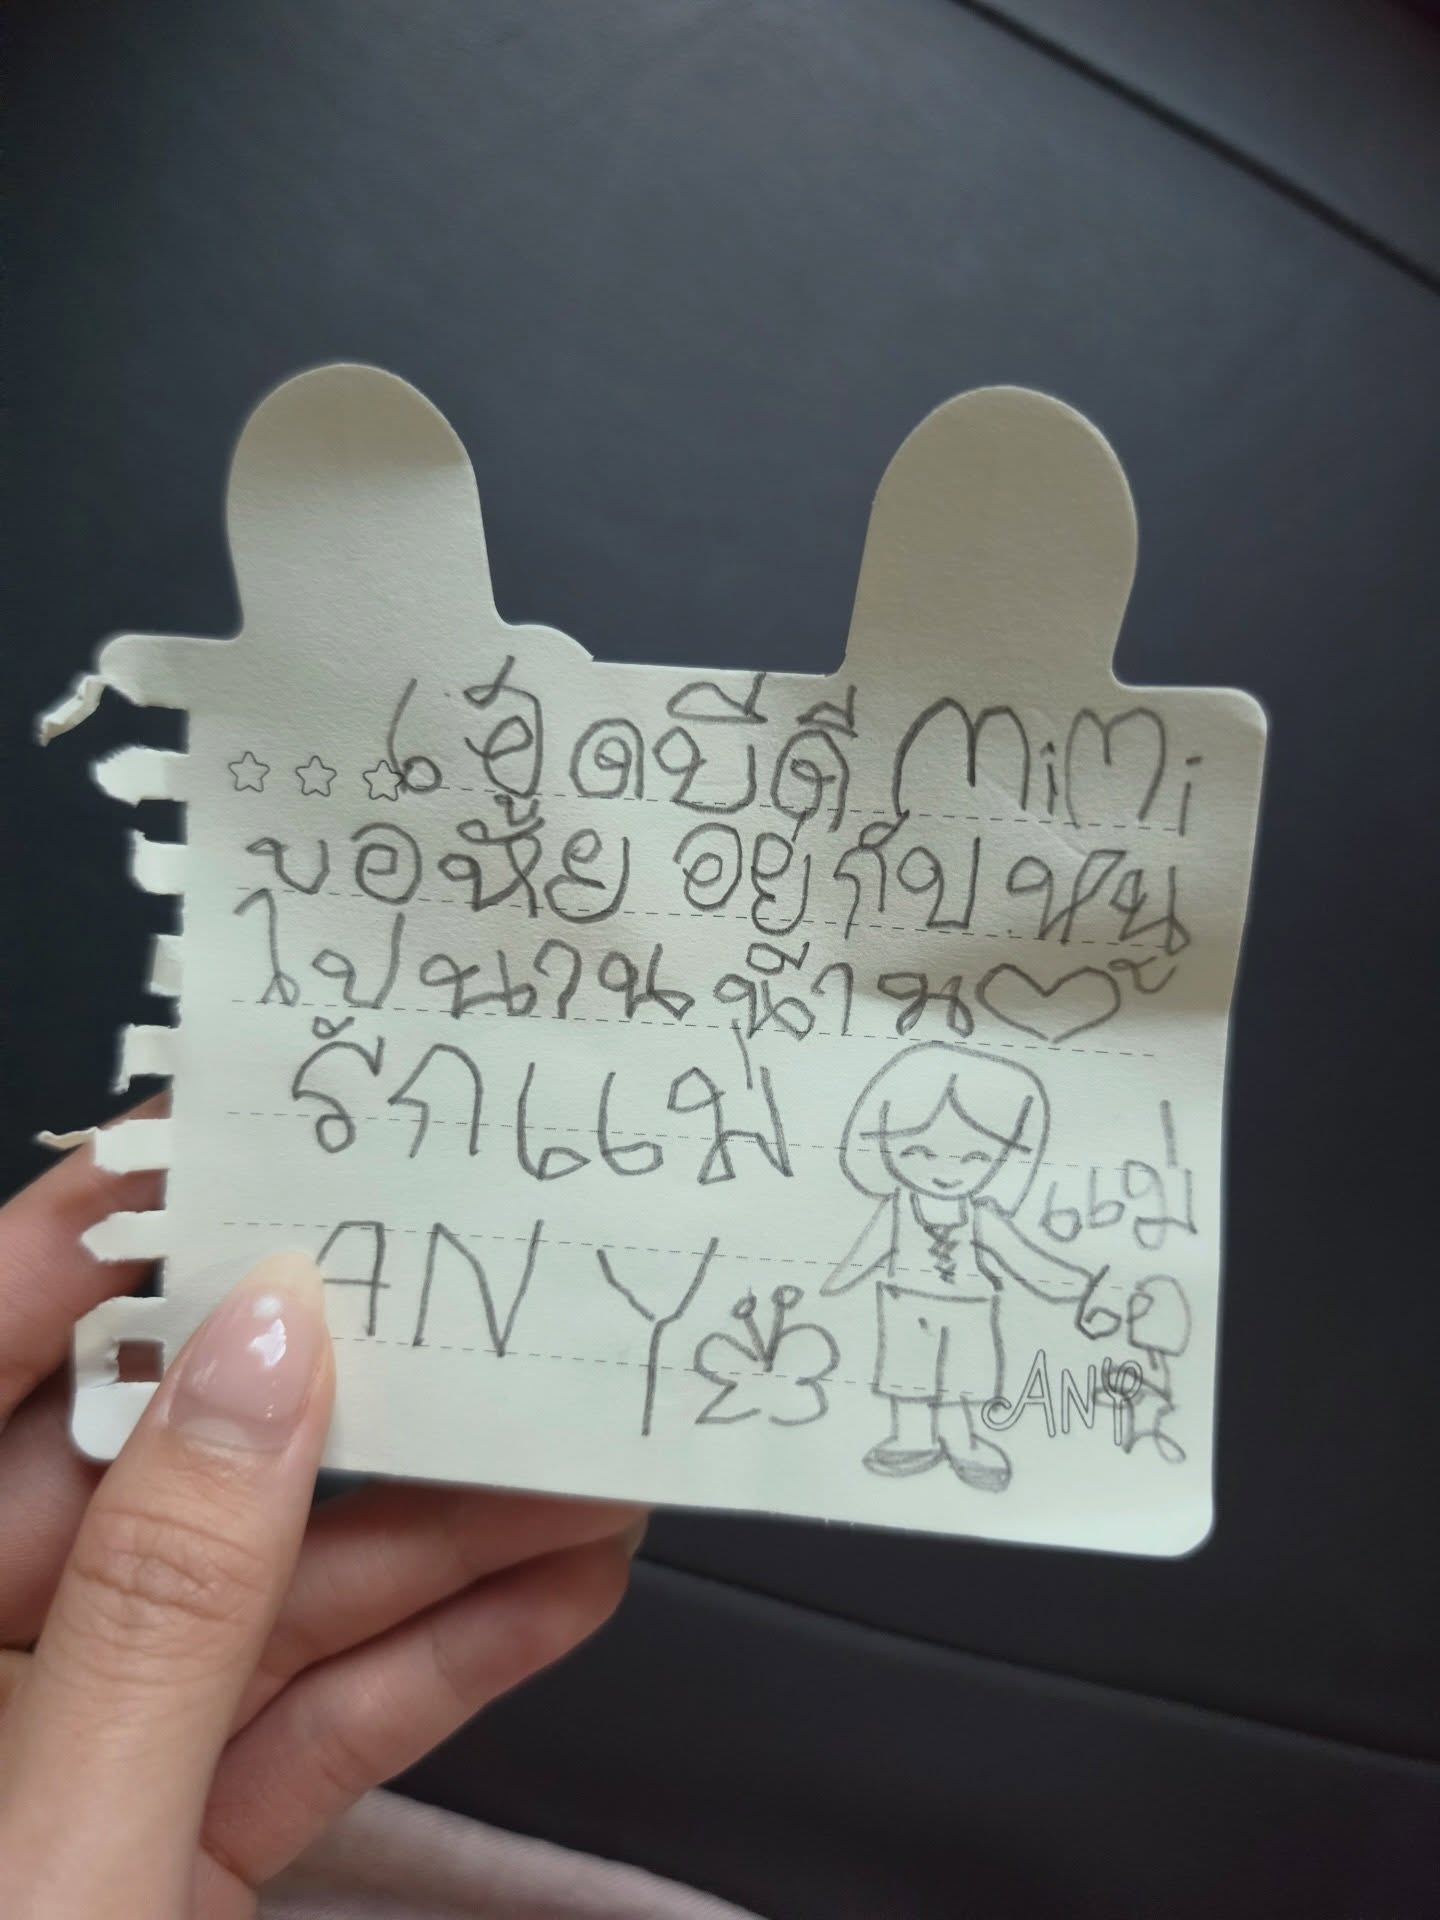 เฮ็ดบีดี MiMi
ขอหั้ย อยู่กับ หนู
ไปนาน น้าน น ะ
รักแม่
ANY
แม่
ANY